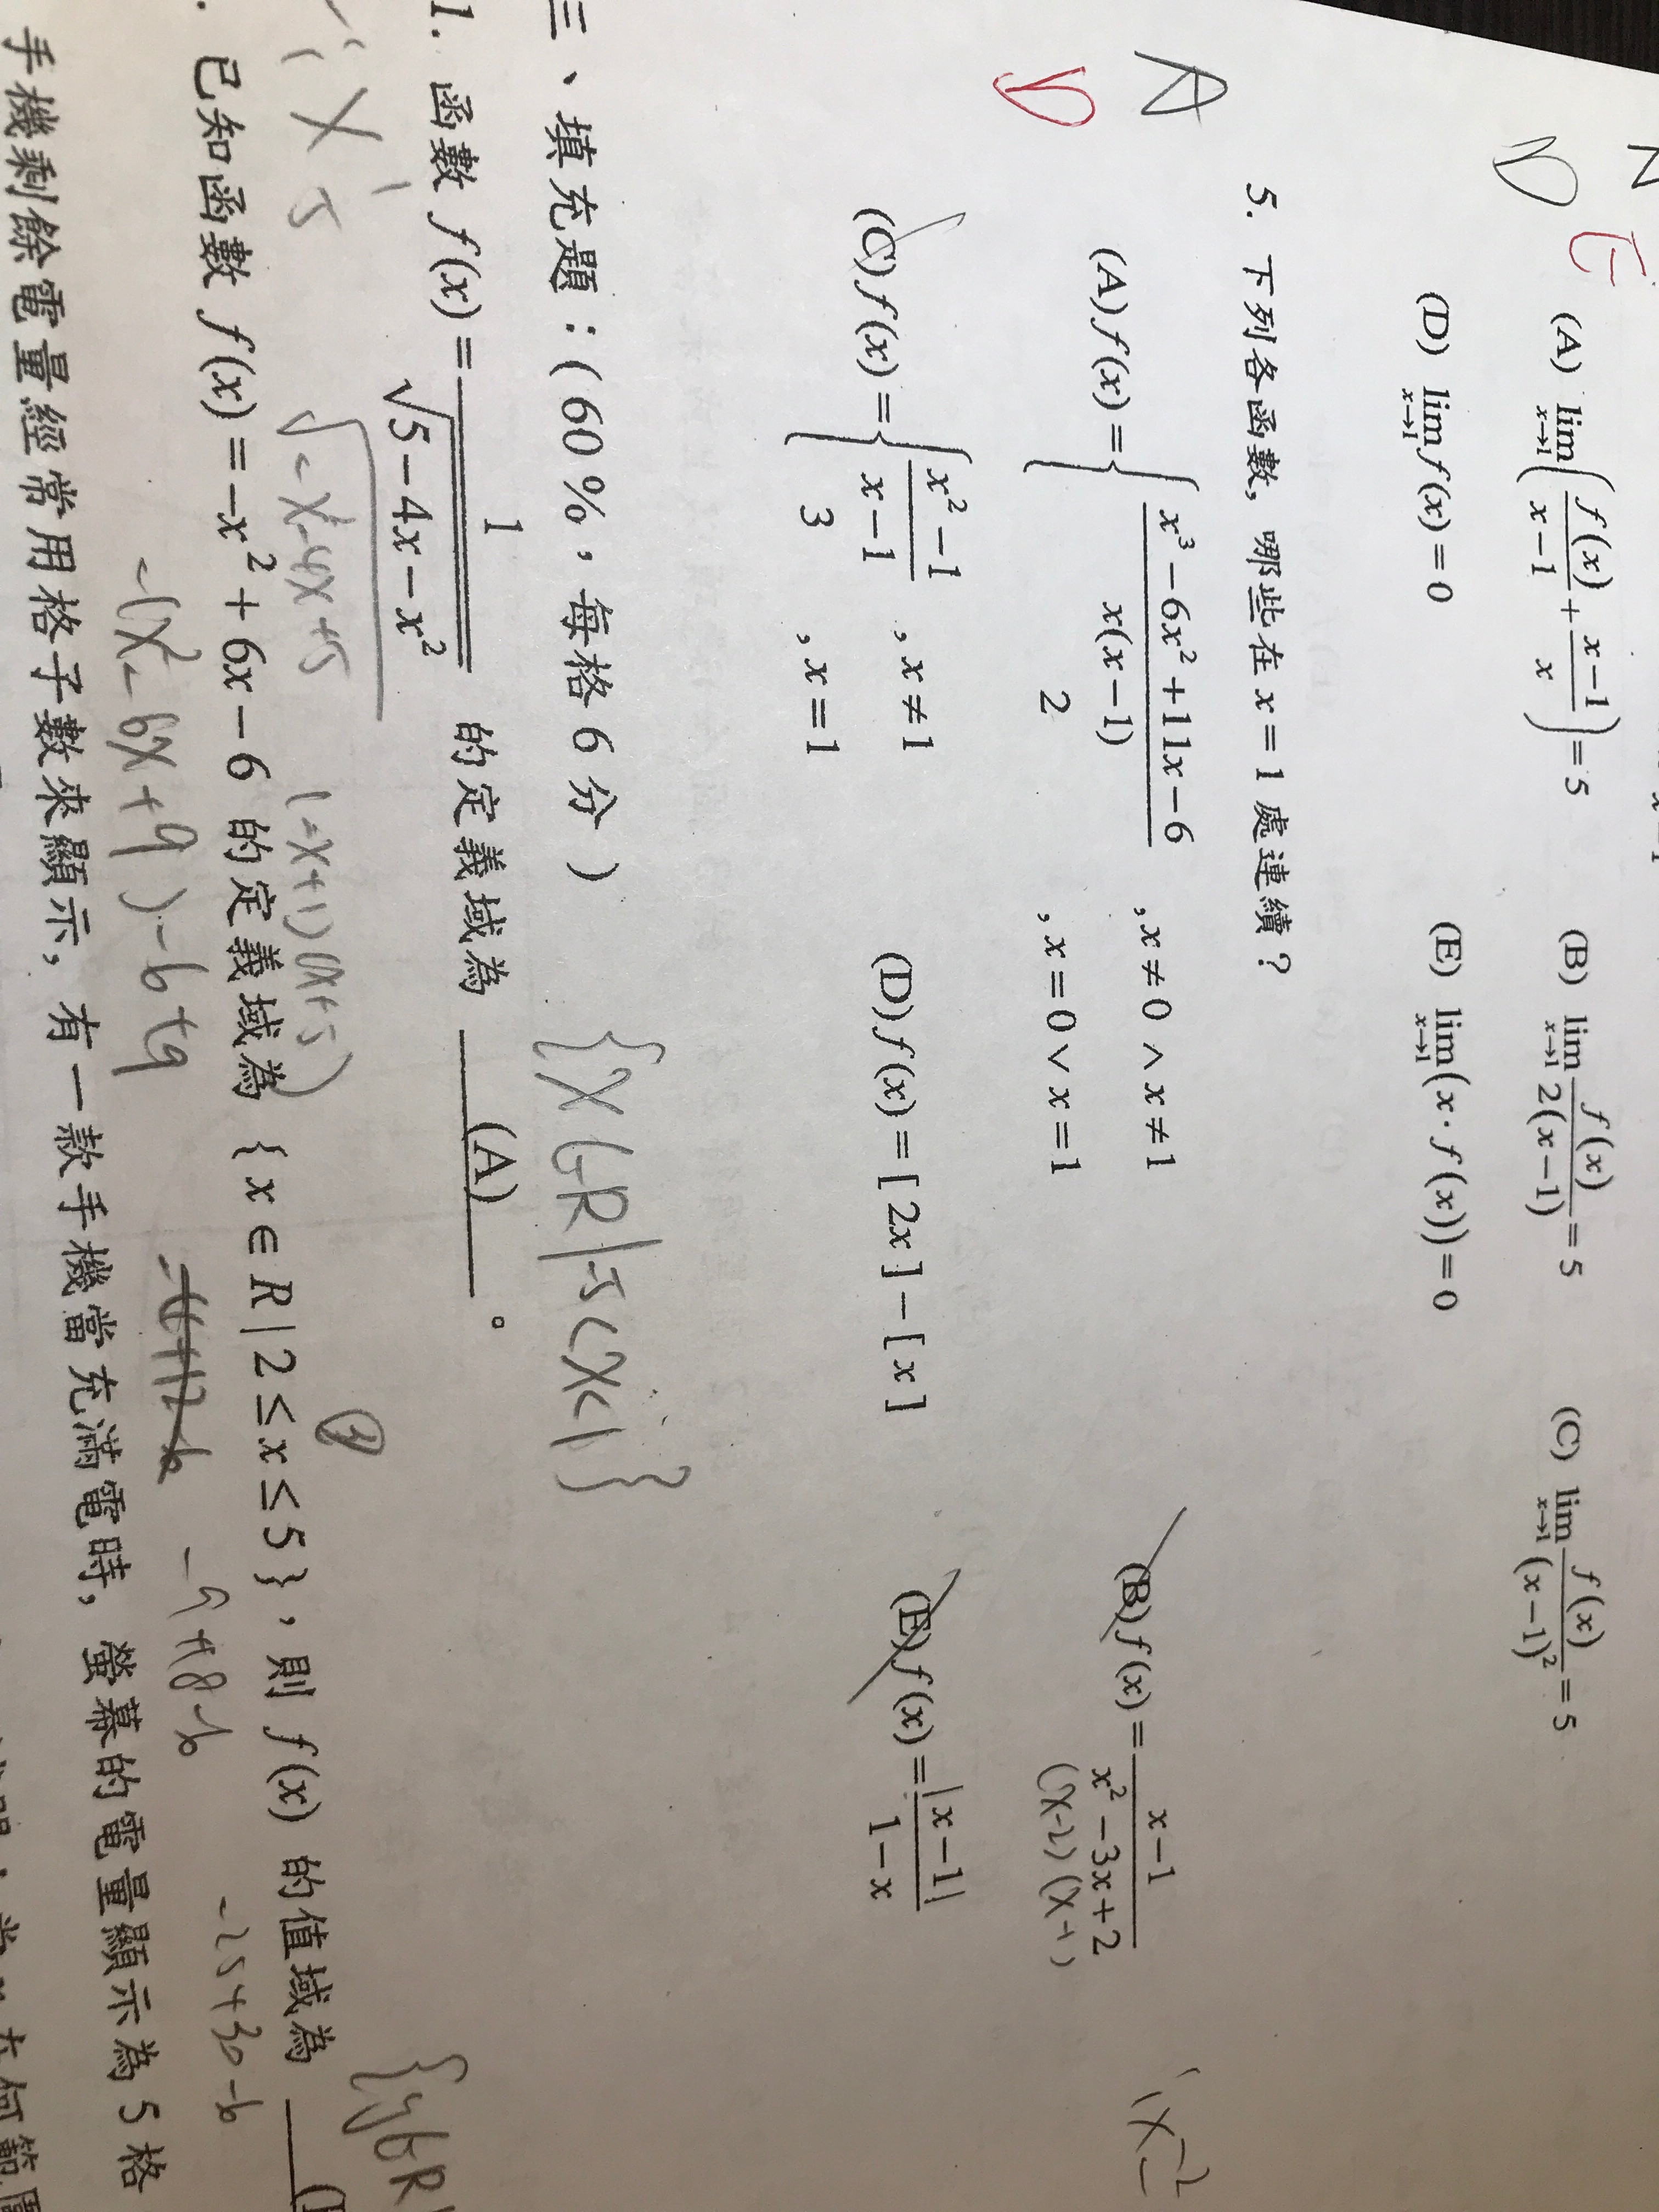 D E
(A) lim x→1 (f(x)/(x-1) + (x-1)/x) = 5 (B) lim x→1 f(x)/(2(x-1)) = 5 (C) lim x→1 f(x)/(x-1)² = 5
(D) lim x→1 f(x) = 0 (E) lim x→1 (x·f(x)) = 0
A D
5. 下列各函數, 哪些在 x=1 處連續?
(A) f(x) = { (x³-6x²+11x-6)/(x(x-1)) , x≠0 ∧ x≠1
2 , x=0 ∨ x=1
(B) f(x) = (x-1)/(x²-3x+2)
(x-2)(x-1)
(C) f(x) = { (x²-1)/(x-1) , x≠1
3 , x=1
(D) f(x) = [2x]-[x] (E) f(x) = |x-1|/(1-x)
三、填充題:(60%, 每格 6 分)
{x∈R|-5<x<1}
1. 函數 f(x) = 1/√(5-4x-x²) 的定義域為 (A) 。
√(-x²-4x+5)
(-x+1)(x+5)
. 已知函數 f(x) = -x²+6x-6 的定義域為 {x∈R|2≤x≤5}, 則 f(x) 的值域為
{y∈R|
-(x²-6x+9)-6+9
-9+18-6
-25+30-6
手機剩餘電量經常用格子數來顯示, 有一款手機當充滿電時, 螢幕的電量顯示為 5 格